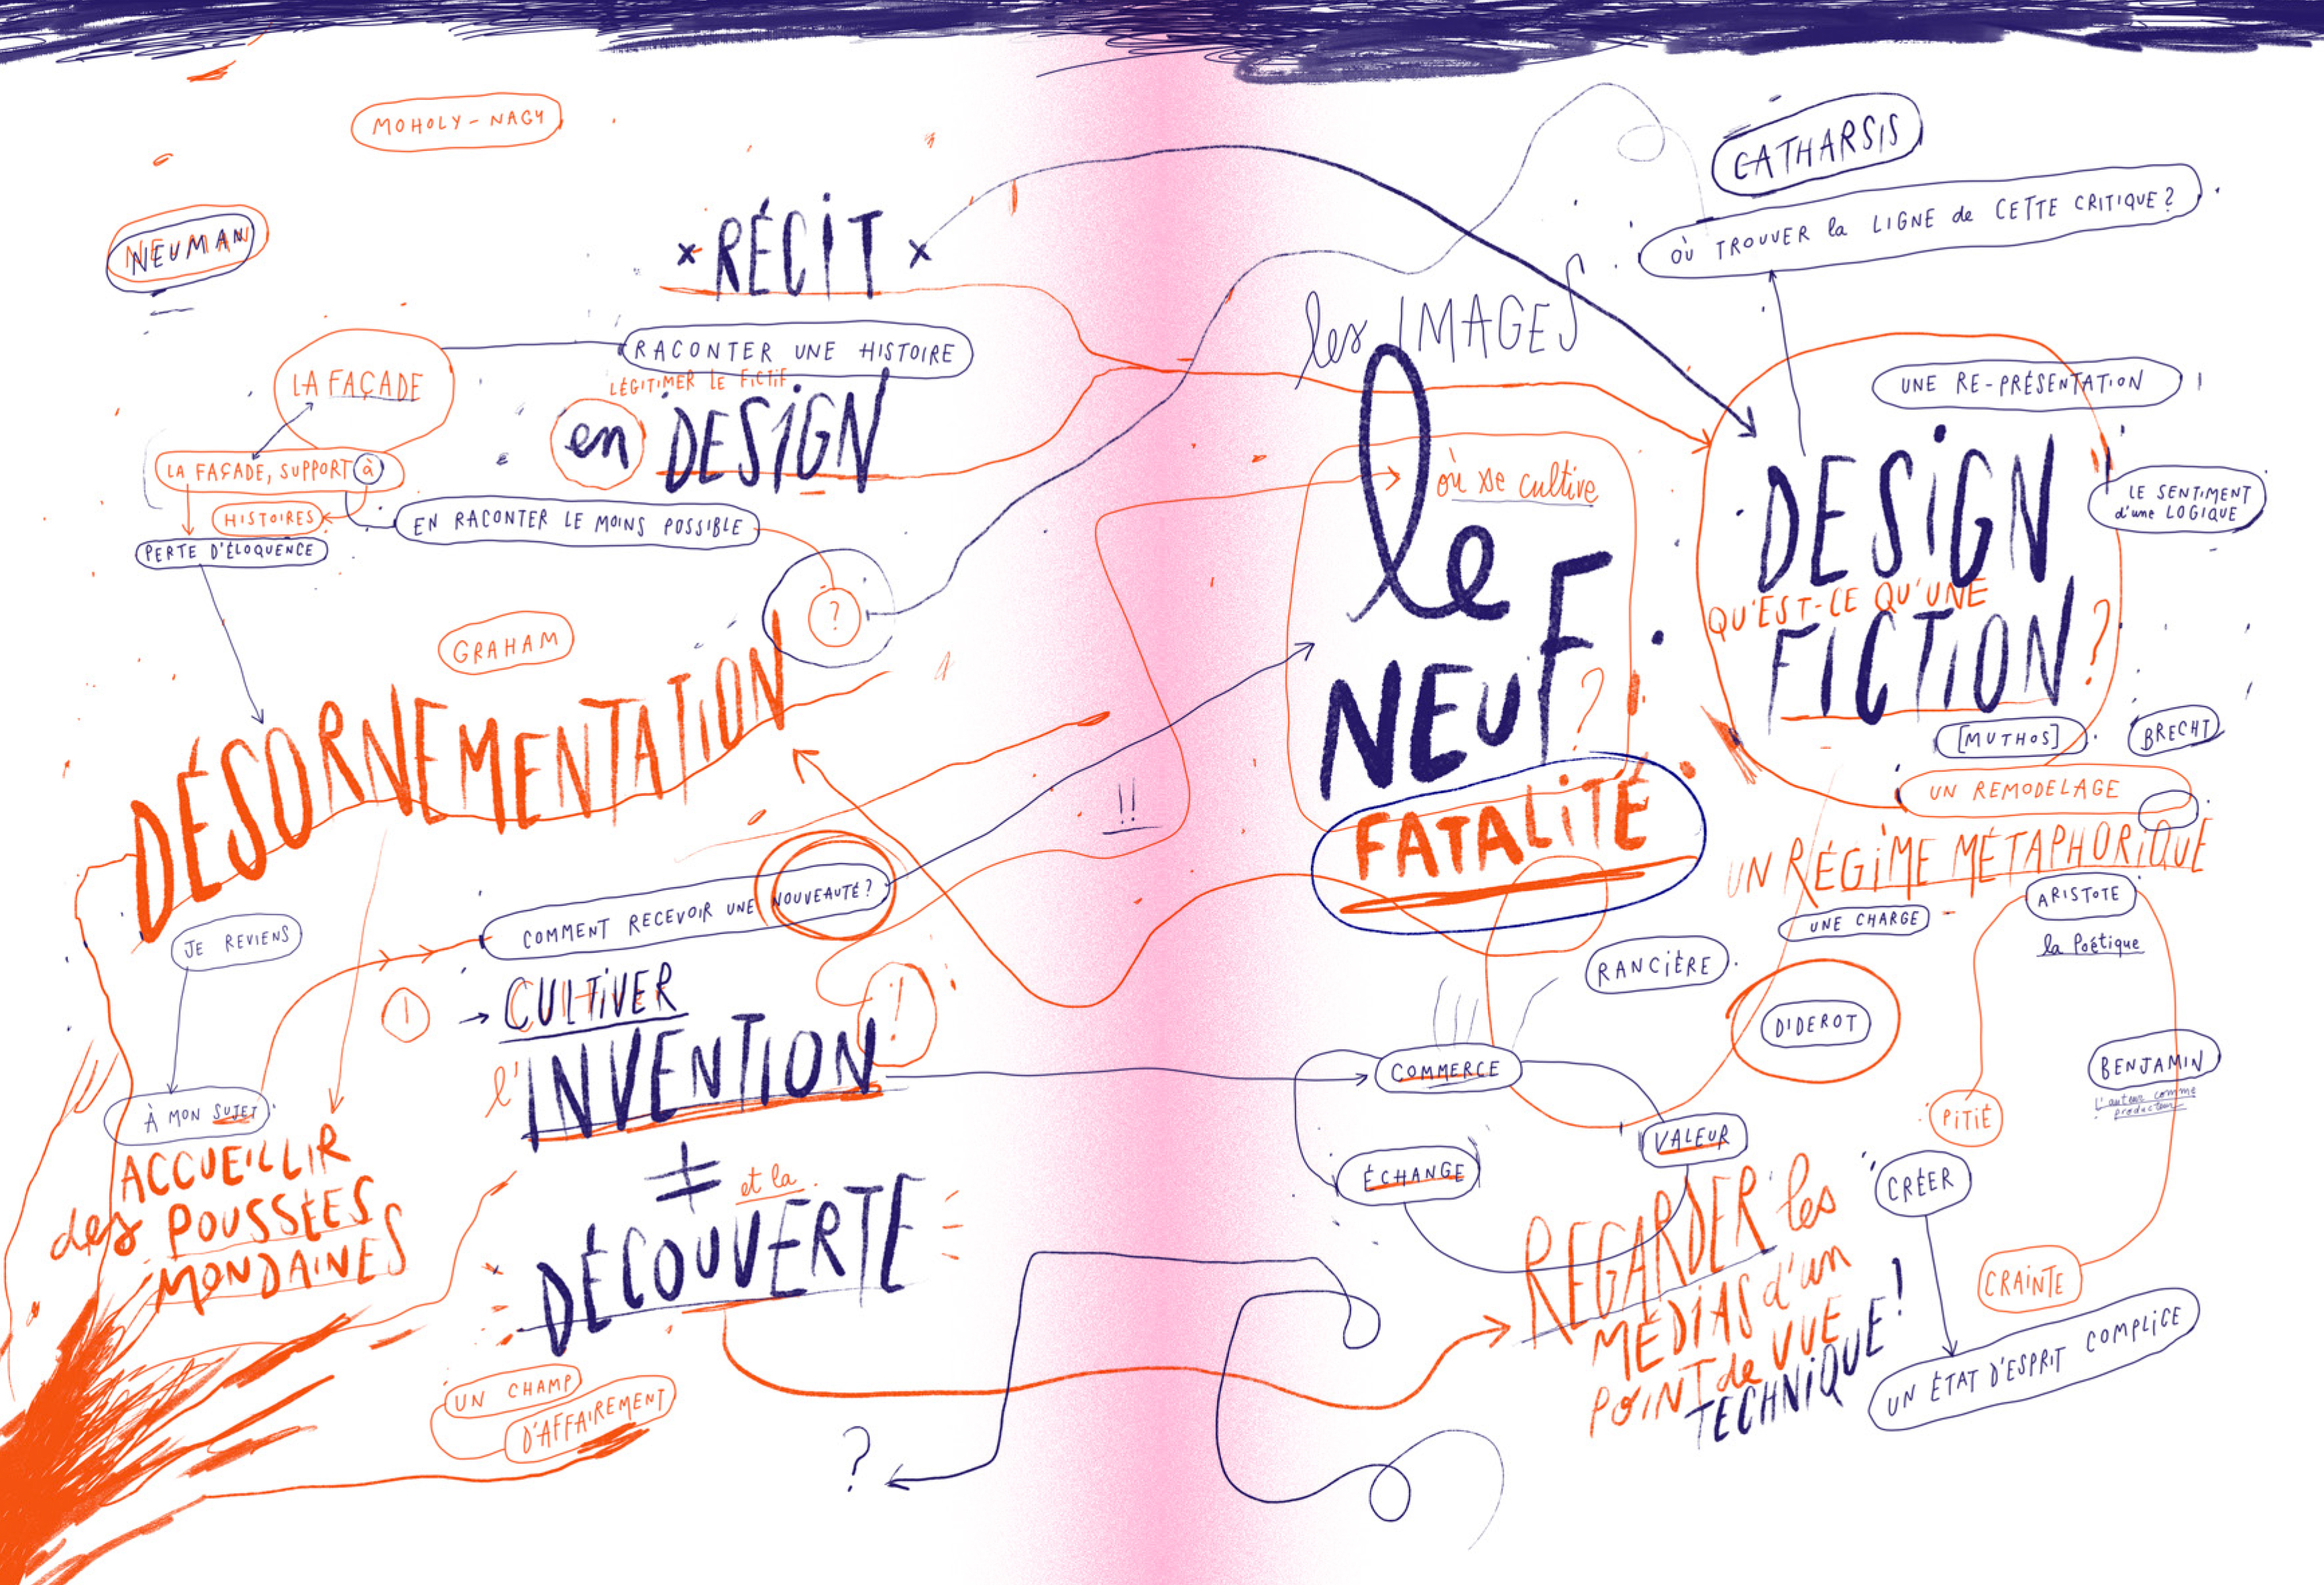 MOHOLY-NAGY
NEUMAN
× RÉCIT ×
RACONTER UNE HISTOIRE
LÉGITIMER LE FICTIF
LA FAÇADE
en DESIGN
LA FAÇADE, SUPPORT à
HISTOIRES
EN RACONTER LE MOINS POSSIBLE
PERTE D'ÉLOQUENCE
?
GRAHAM
DÉSORNEMENTATION
COMMENT RECEVOIR UNE NOUVEAUTÉ?
JE REVIENS
À MON SUJET
!
→ CULTIVER
l'INVENTION
!
≠ et la
DÉCOUVERTE
ACCUEILLIR
des POUSSÉES
MONDAINES
UN CHAMP
D'AFFAIREMENT
?
!!
CATHARSIS
OÙ TROUVER la LIGNE de CETTE CRITIQUE?
les IMAGES
où se cultive
le
NEUF
?
FATALITÉ
UNE RE-PRÉSENTATION
LE SENTIMENT
d'une LOGIQUE
DESIGN
QU'EST-CE QU'UNE
FICTION?
[MUTHOS]
BRECHT
UN REMODELAGE
UN RÉGIME MÉTAPHORIQUE
ARISTOTE
la Poétique
UNE CHARGE
RANCIÈRE
DIDEROT
COMMERCE
VALEUR
ÉCHANGE
BENJAMIN
l'auteur comme
producteur
PITIÉ
CRÉER
CRAINTE
UN ÉTAT D'ESPRIT COMPLICE
REGARDER les
MÉDIAS d'un
POINT de VUE
TECHNIQUE!